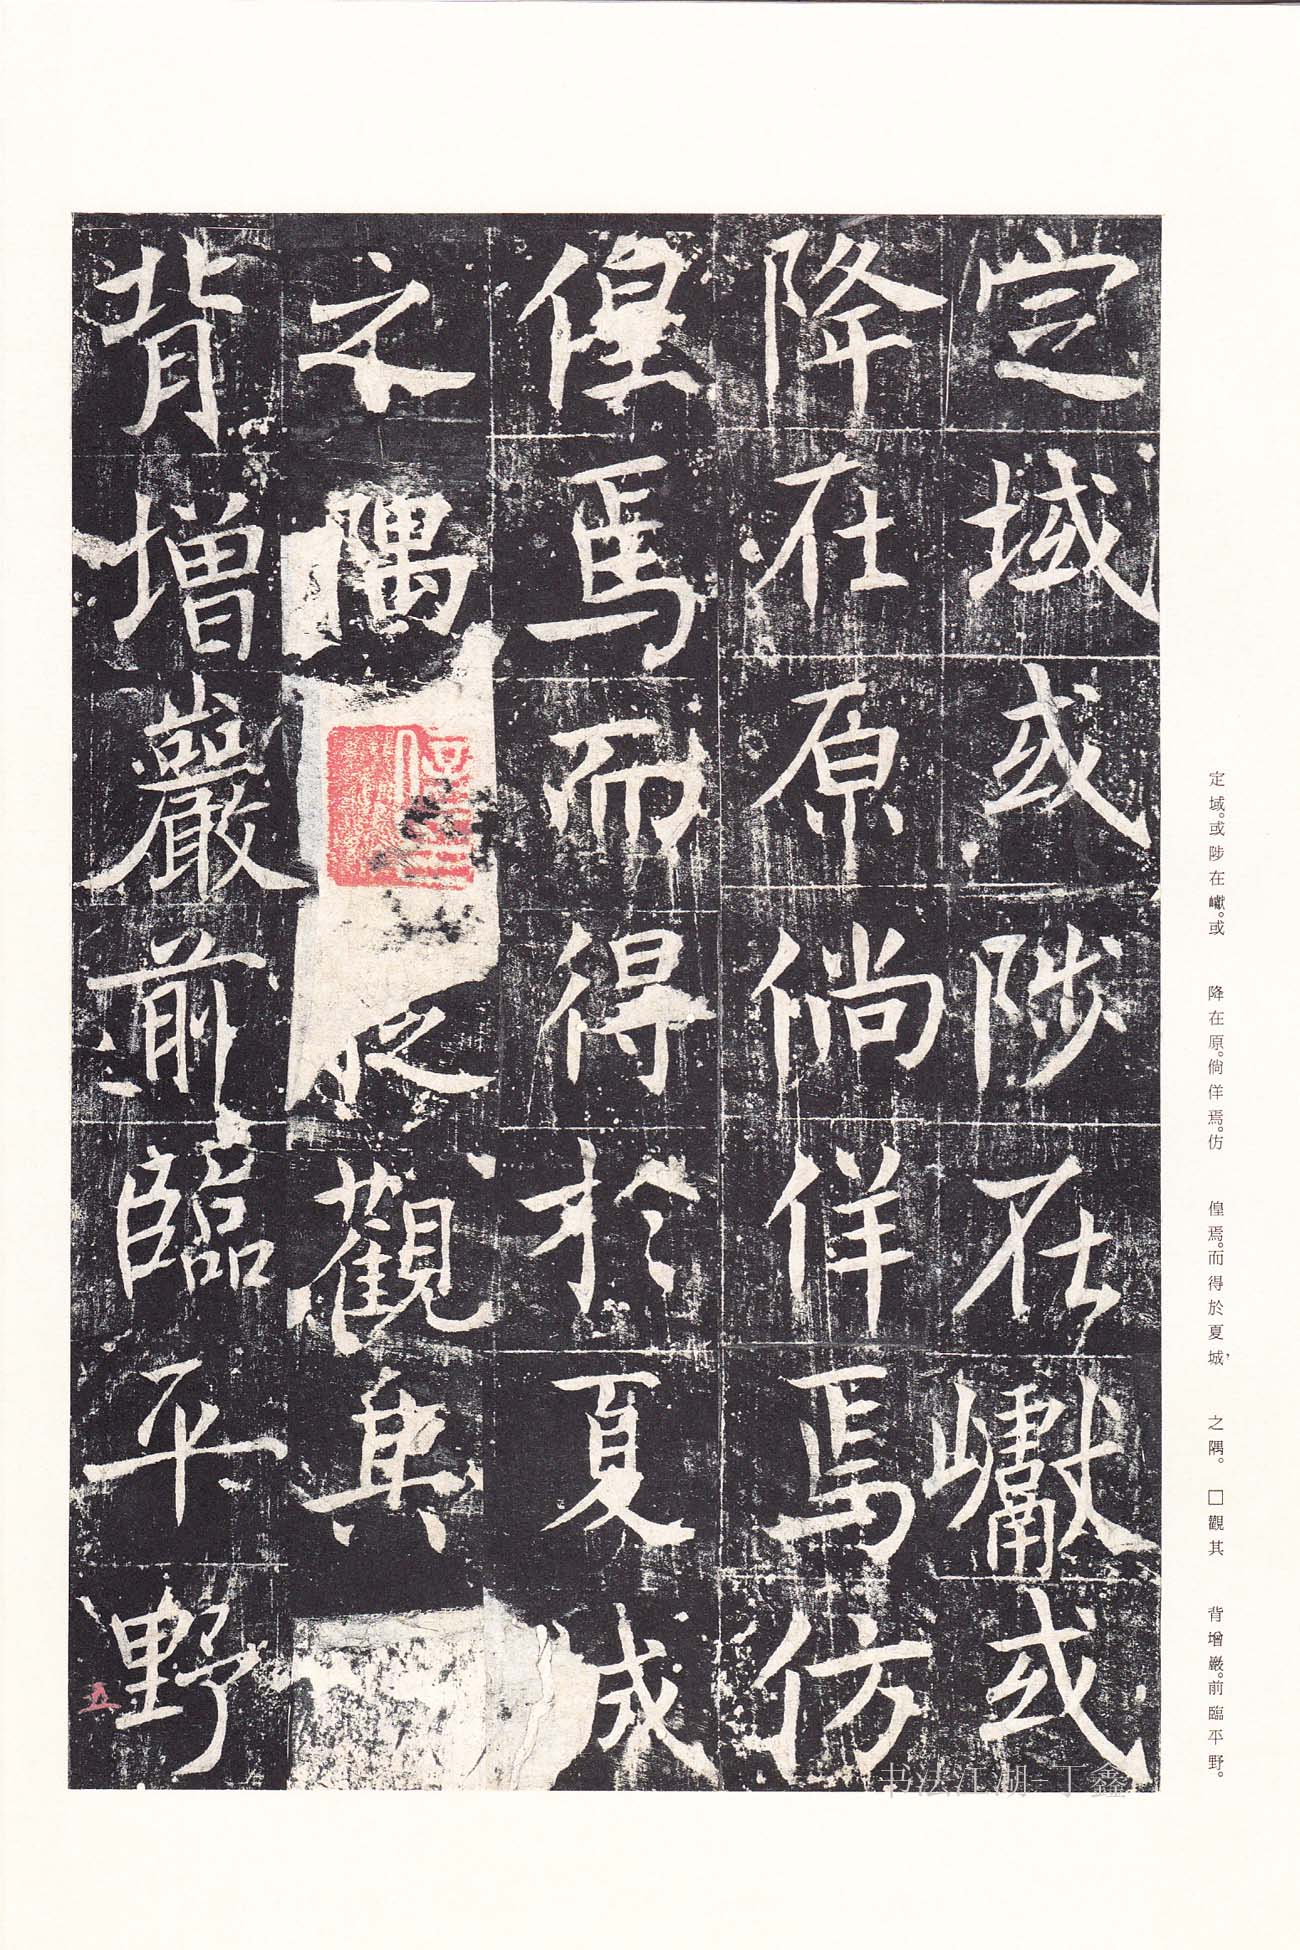 定域或陟在巘或
降在原倘佯焉仿
偟焉而得於夏城
之隅 觀其
背增巖前臨平野
五
定域。或陟在巘。或
降在原。倘佯焉。仿
偟焉。而得於夏城，
之隅。□觀其
背增巖。前臨平野。
书法江湖-丁鑫